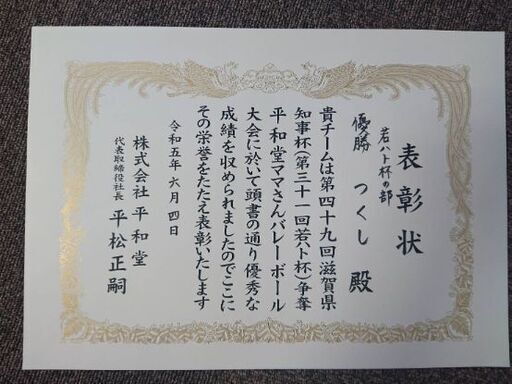 表彰状
若ハト杯の部
優勝 つくし 殿
貴チームは第四十九回滋賀県
知事杯(第三十一回若ハト杯)争奪
平和堂ママさんバレーボール
大会に於いて頭書の通り優秀な
成績を収められましたのでここに
その栄誉をたたえ表彰いたします
令和五年六月四日
株式会社 平和堂
代表取締役社長 平松正嗣